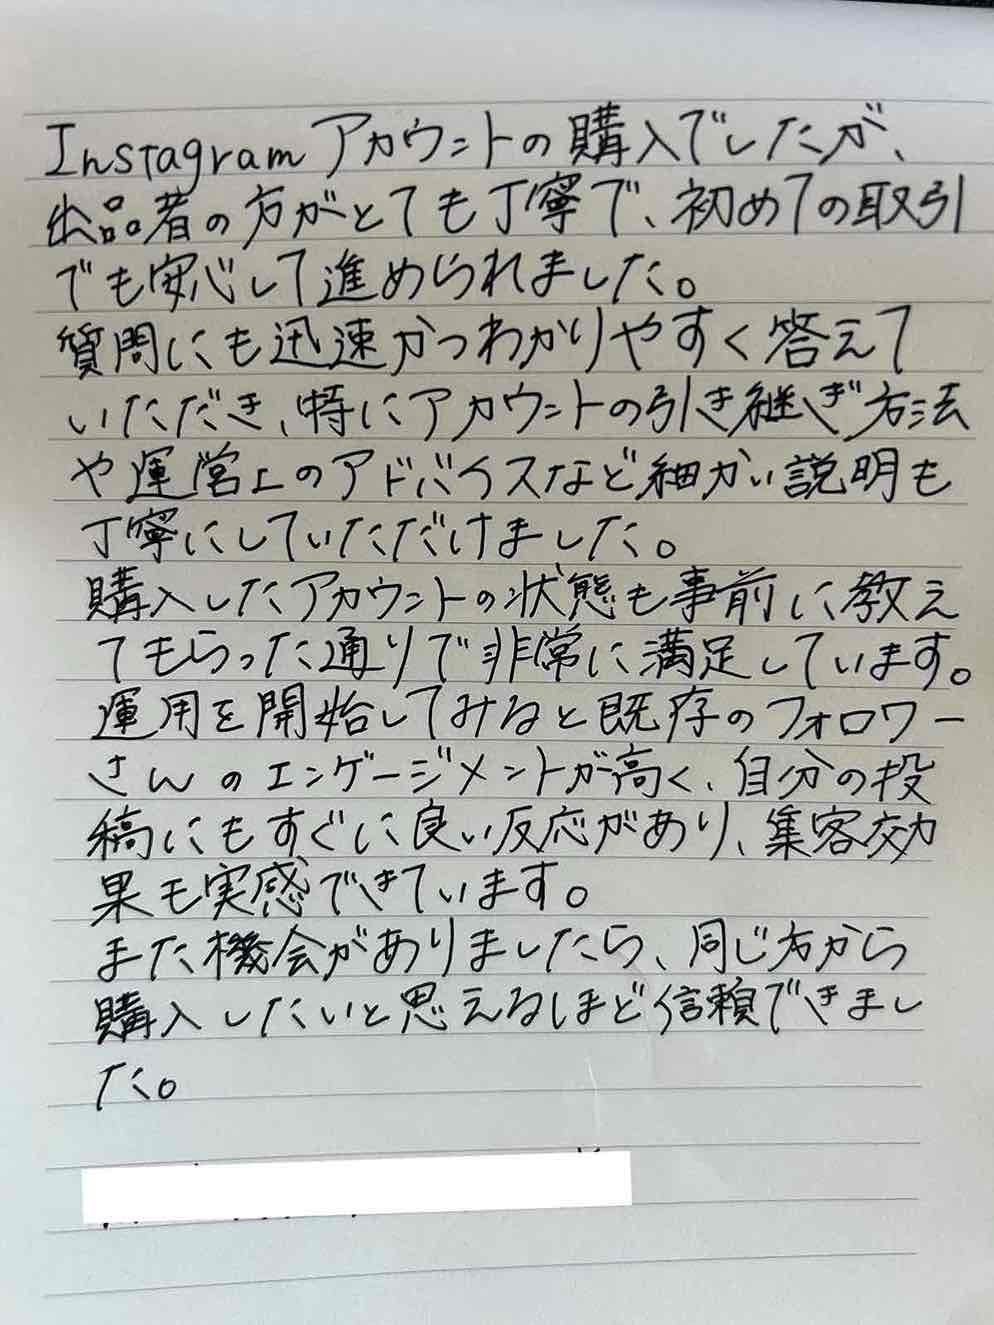 Instagramアカウントの購入でしたが、
出品者の方がとても丁寧で、初めての取引
でも安心して進められました。
質問にも迅速かつわかりやすく答えて
いただき、特にアカウントの引き継ぎ方法
や運営上のアドバイスなど細かい説明も
丁寧にしていただけました。
購入したアカウントの状態も事前に教え
てもらった通りで非常に満足しています。
運用を開始してみると既存のフォロワー
さんのエンゲージメントが高く、自分の投
稿にもすぐに良い反応があり、集客効
果も実感できています。
また機会がありましたら、同じ方から
購入したいと思えるほど信頼できまし
た。